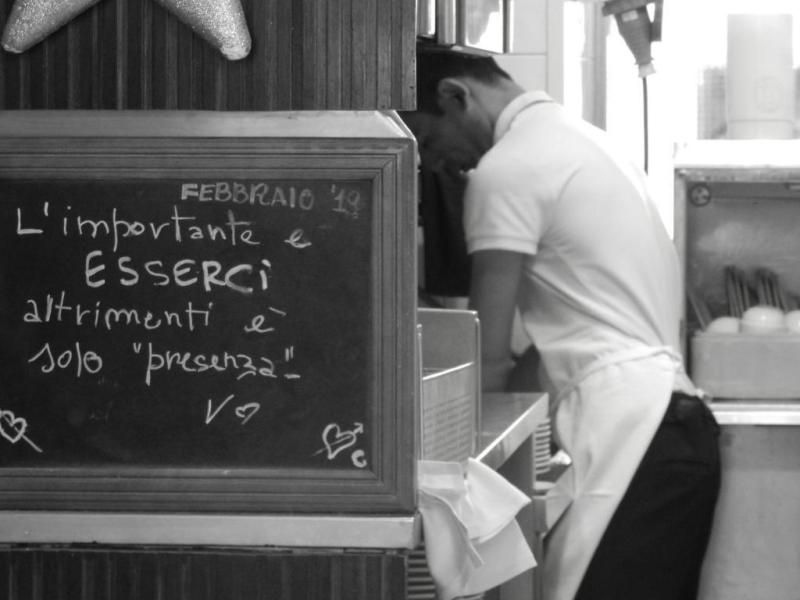 FEBBRAIO '19
L'importante e
ESSERCi
altrimenti è
solo "presenza"
V
C